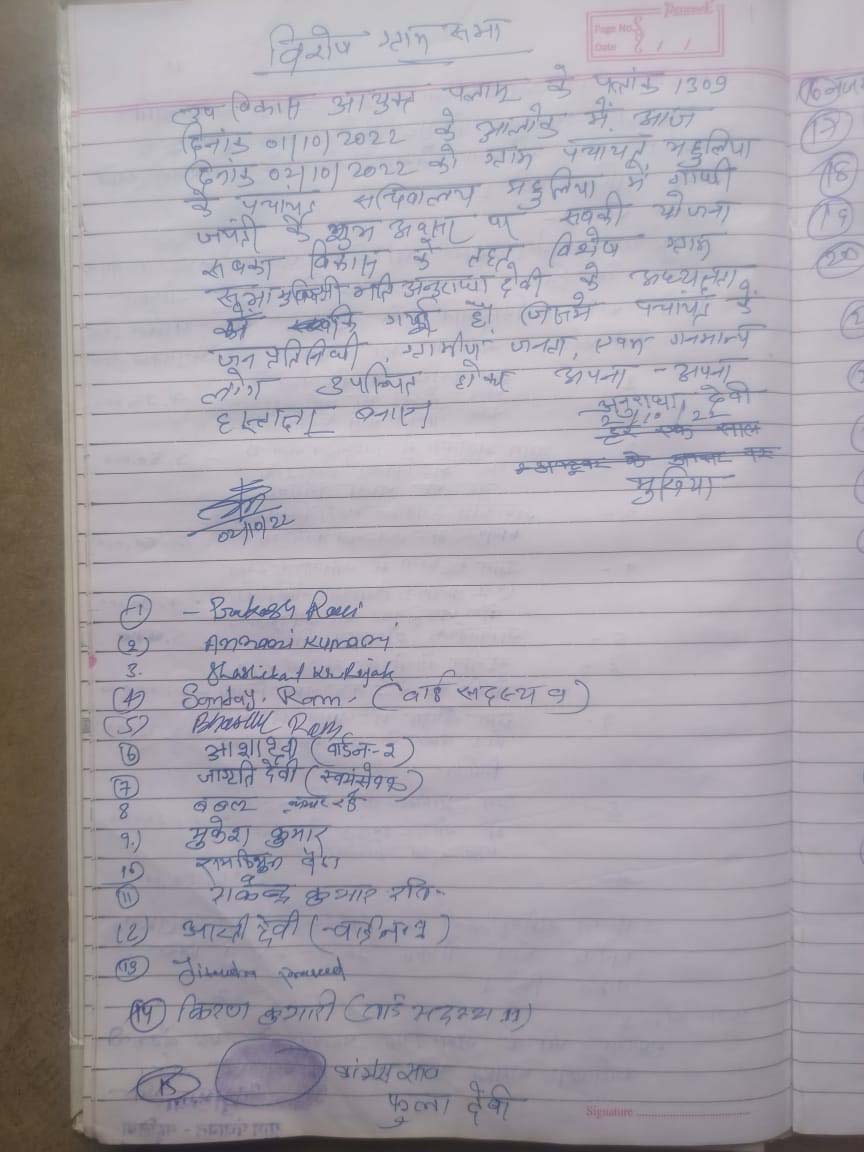 विशेष ग्राम सभा
Page No. 8
Date / /
उप विकास आयुक्त पलामू के पत्रांक 1309
दिनांक 01/10/2022 के आलोक में आज
दिनांक 02/10/2022 को ग्राम पंचायत महुलिया
के पंचायत सचिवालय महुलिया में गांधी
जयंती के शुभ अवसर पर सबकी योजना
सबका विकास के तहत विशेष ग्राम
सभा मुखिया श्रीमति अनुराधा देवी के अध्यक्षता
की गयी है। जिसमें पंचायत के
जन प्रतिनिधी, ग्रामीण जनता, एवम गनमान्य
लोग उपस्थित होकर अपना - अपना
हस्ताक्षर बनाए।
अनुराधा देवी
2/10/22
हर एक साल
के अवसर पर
मुखिया
02/10/22
1 - Prakash Ravi
(2) Anmani Kumari
3. Shashikant Kr. Rajak
(4) Sanday. Ram. (वार्ड सदस्य 9)
(5) Ram
6 आशा देवी (वार्ड न:-2)
7 जागृति देवी (स्वयंसेवक)
8 बबलू कुमार
9.) मुकेश कुमार
10
11 राकेश कुमार रवि
12) आरती देवी (वार्ड न:1)
13 Jitendra prasad
14 किरण कुमारी (वार्ड सदस्य 11)
15
फुला देवी
Signature
16
17
18
19
20